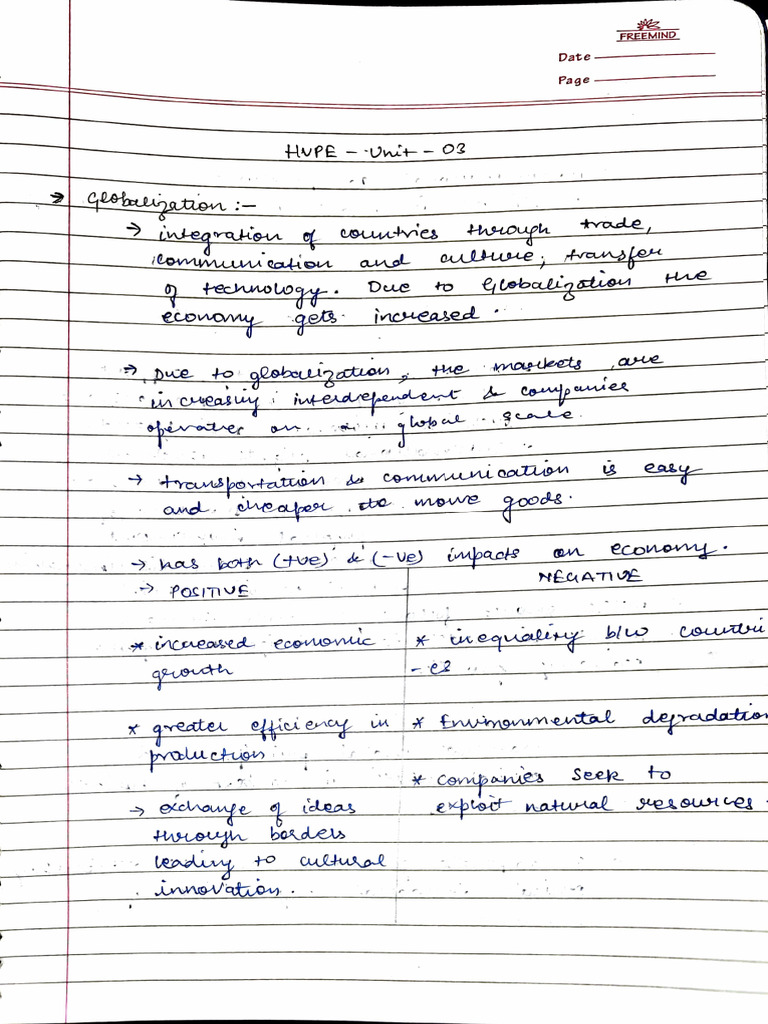 FREEMIND
Date
Page
HVPE - Unit - 03
→ Globalization :-
→ integration of countries through trade,
communication and culture, transfer
of technology. Due to Globalization the
economy gets increased.
→ Due to globalization, the markets are
increasing interdependent & companies
operates on a global scale.
→ transportation & communication is easy
and cheaper to move goods.
→ has both (+ve) & (-ve) impacts on economy.
→ POSITIVE
NEGATIVE
* increased economic
growth
* inequality b/w countri
- es
* greater efficiency in
production
* Environmental degradation
* companies seek to
exploit natural resources.
→ exchange of ideas
through borders
leading to cultural
innovation.